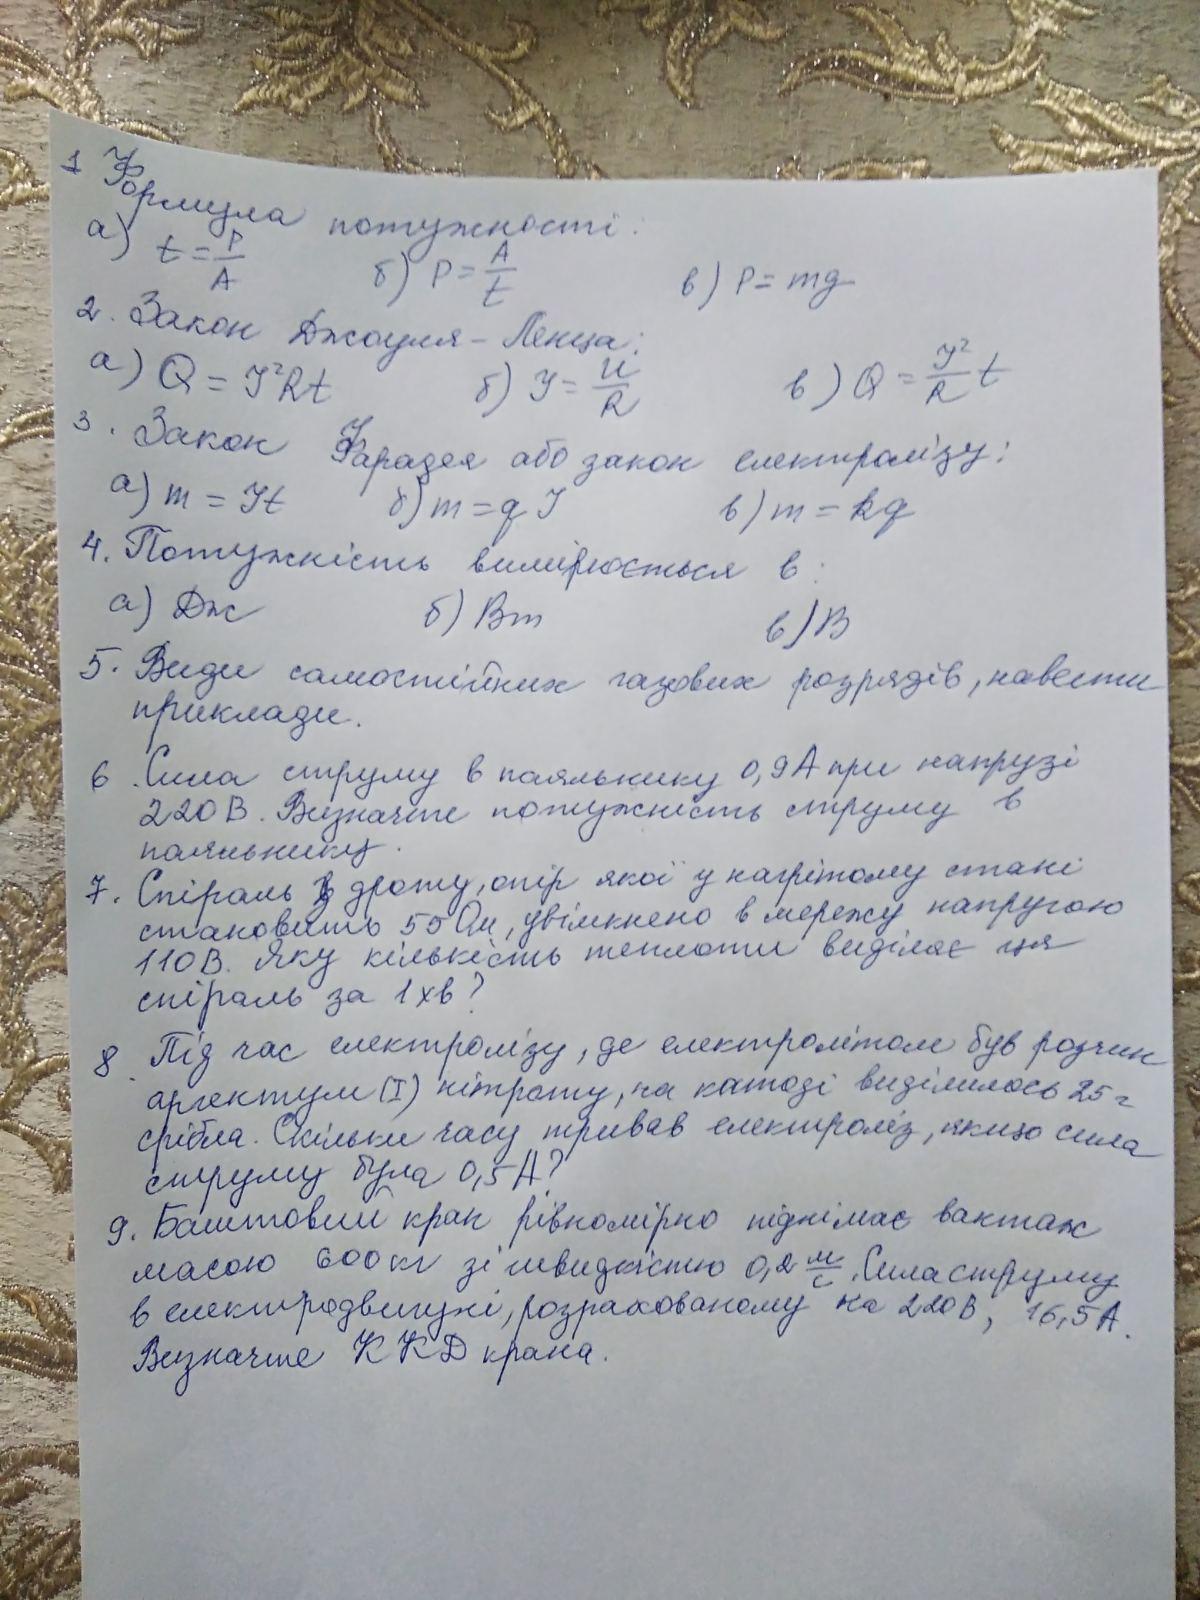 1 Формула потужності:
а) t = P/A б) P = A/t в) P = mg
2. Закон Джоуля - Ленца:
а) Q = I²Rt б) I = U/R в) Q = I²/R t
3. Закон Фарадея або закон електролізу:
а) m = It б) m = qI в) m = kq
4. Потужність вимірюється в:
а) Дж б) Вт в) В
5. Види самостійних газових розрядів, навести
приклади.
6. Сила струму в паяльнику 0,9А при напрузі
220В. Визначте потужність струму в
паяльнику.
7. Спіраль з дроту, опір якої у нагрітому стані
становить 55 Ом, увімкнено в мережу напругою
110В. Яку кількість теплоти виділяє ця
спіраль за 1хв?
8. Під час електролізу, де електролітом був розчин
аргентум (I) нітрату, на катоді виділилось 25г
срібла. Скільки часу тривав електроліз, якщо сила
струму була 0,5А?
9. Баштовий кран рівномірно піднімає вантаж
масою 600кг зі швидкістю 0,2 м/с. Сила струму
в електродвигуні, розрахованому на 220В, 16,5А.
Визначте ККД крана.